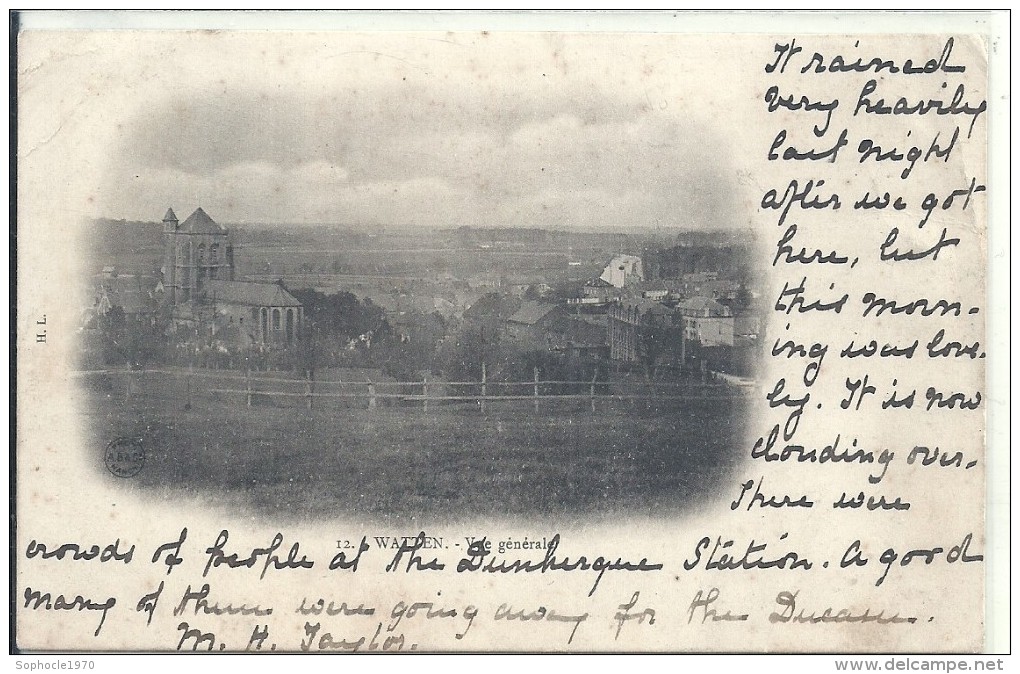 It rained
very heavily
last night
after we got
here, but
this morn-
ing was love-
ly. It is now
clouding over.
There were
H. L.
12. - WATTEN. - Vue générale
crowds of people at the Dunkerque Station. A good
many of them were going away for the Ducasse.
M. H. Taylor.
Sophocle1970
www.delcampe.net